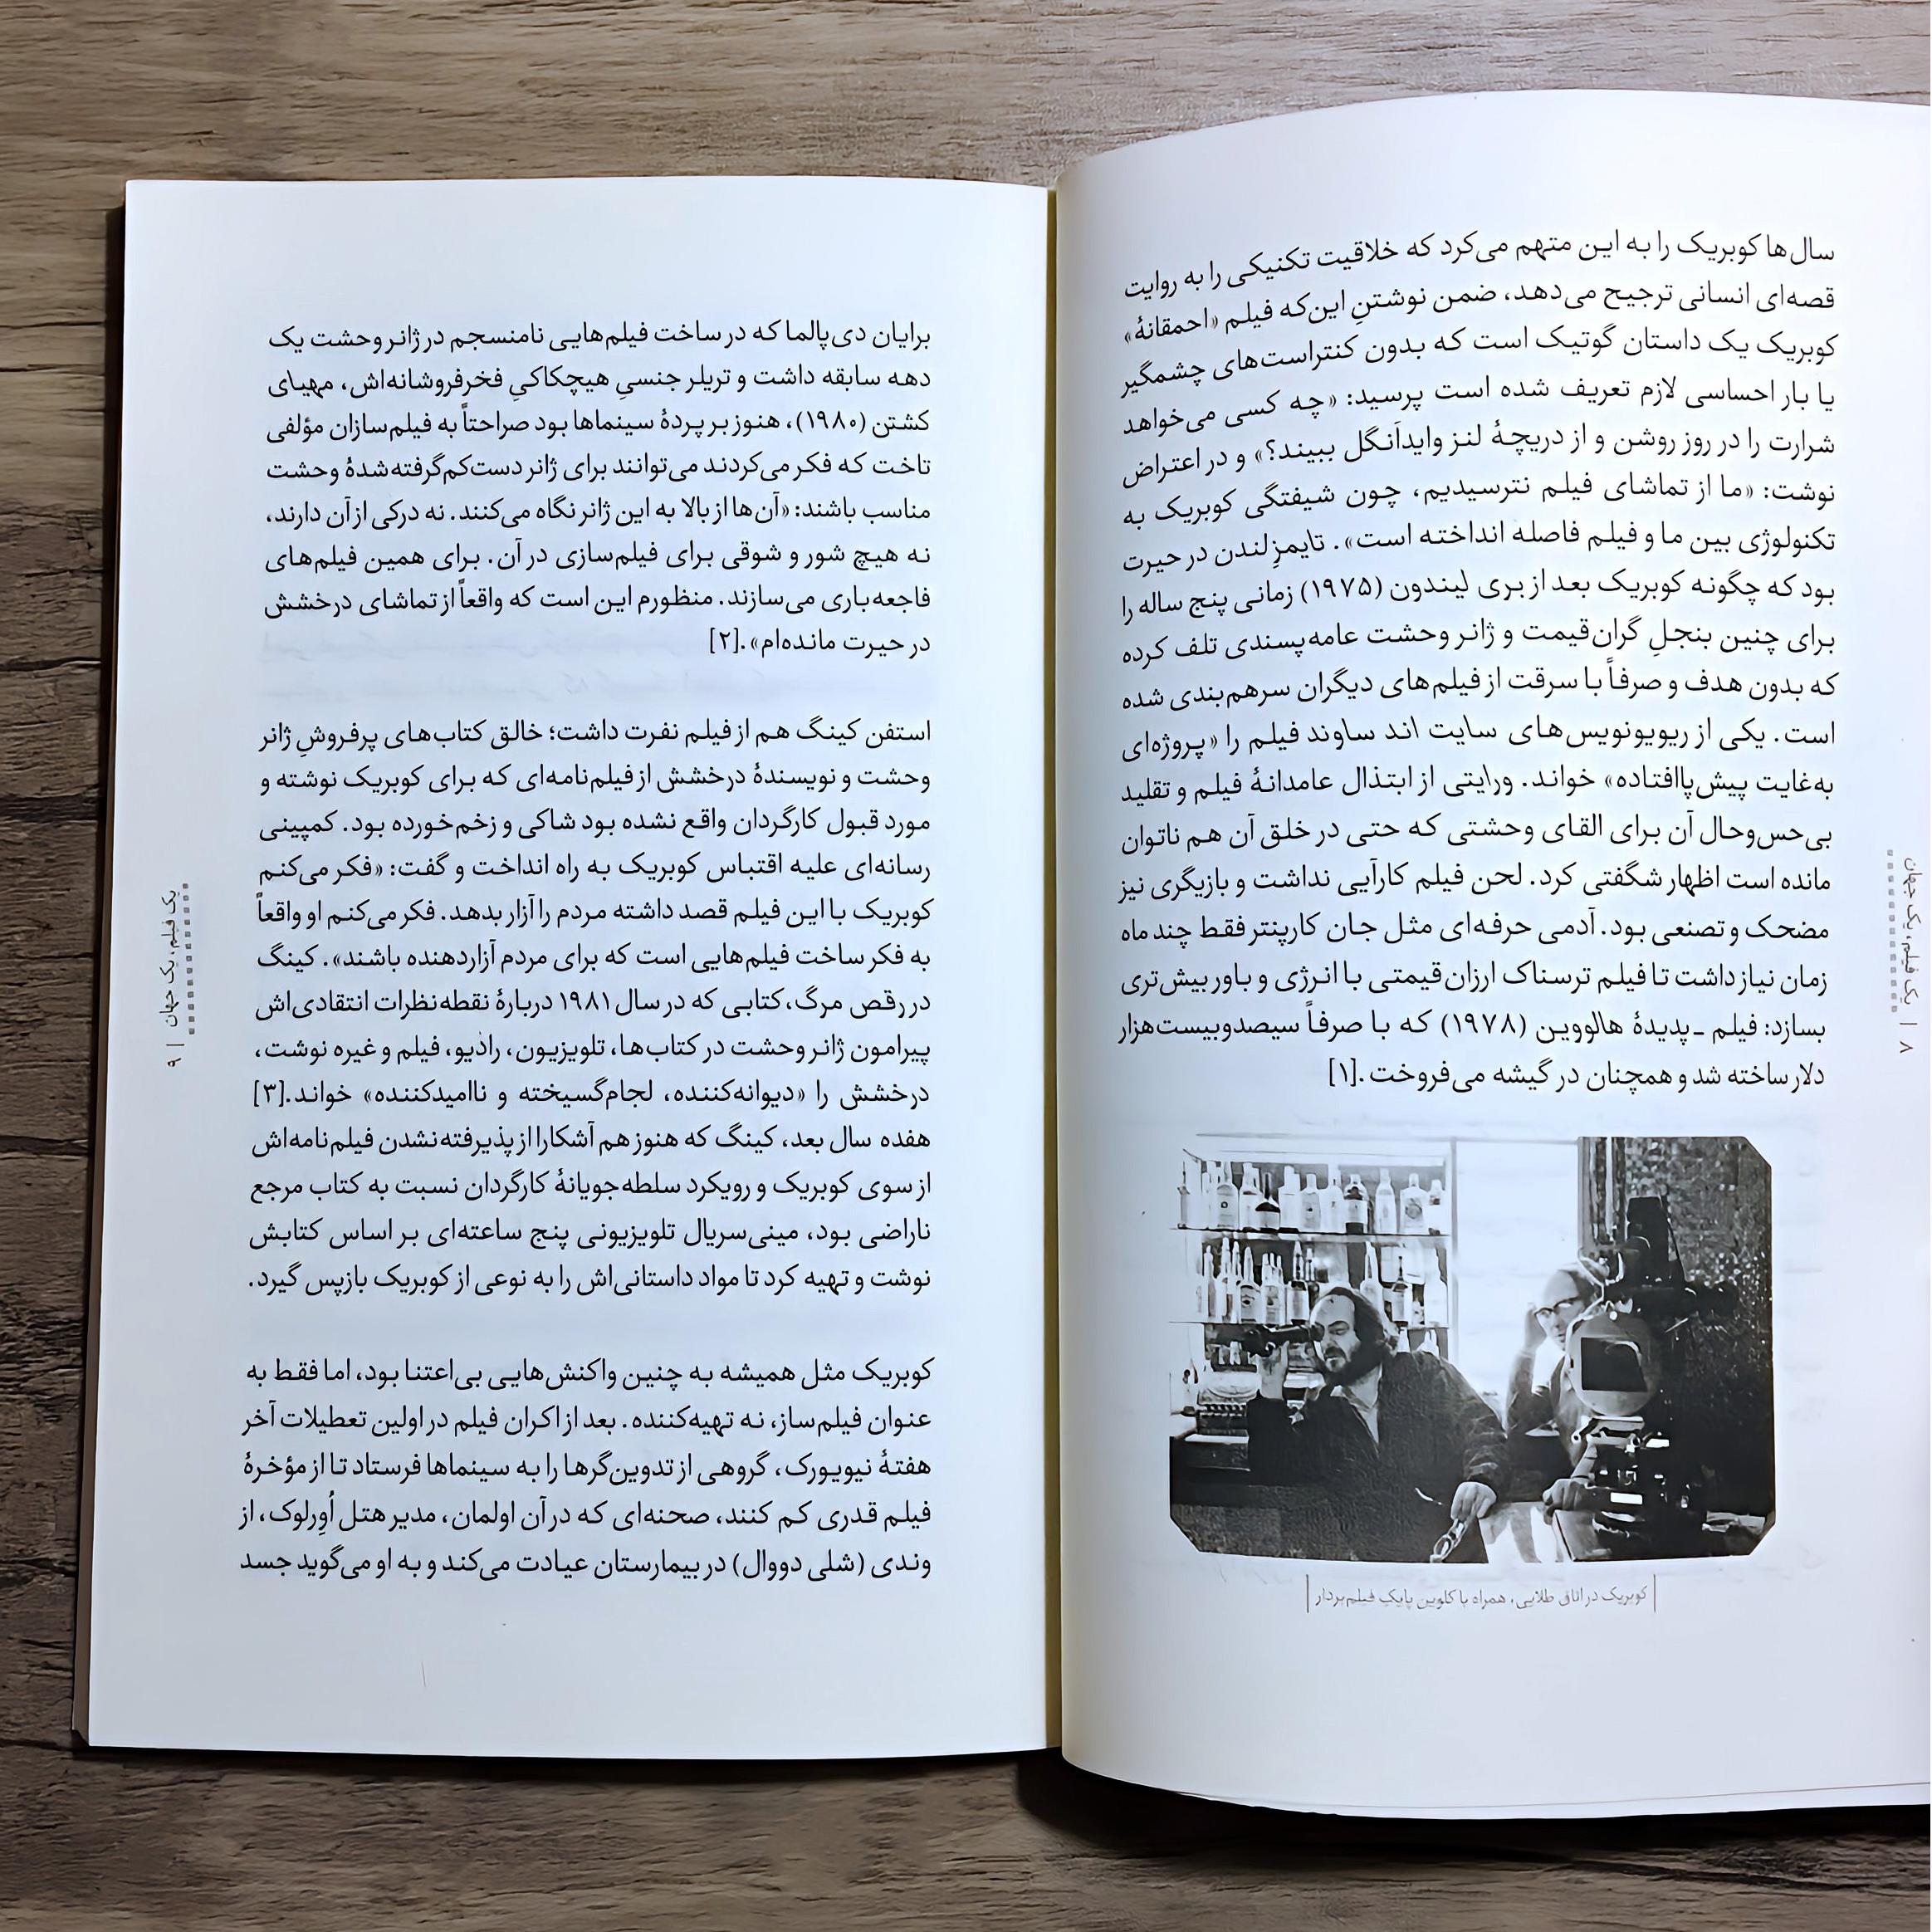 سال‌ها کوبریک را به این متهم می‌کرد که خلاقیت تکنیکی را به روایت
قصه‌ای انسانی ترجیح می‌دهد، ضمن نوشتنِ این‌که فیلم «احمقانهٔ»
کوبریک یک داستان گوتیک است که بدون کنتراست‌های چشمگیر
یا بار احساسی لازم تعریف شده است پرسید: «چه کسی می‌خواهد
شرارت را در روز روشن و از دریچهٔ لنز وایدآنگل ببیند؟» و در اعتراض
نوشت: «ما از تماشای فیلم نترسیدیم، چون شیفتگی کوبریک به
تکنولوژی بین ما و فیلم فاصله انداخته است». تایمزِ لندن در حیرت
بود که چگونه کوبریک بعد از بری لیندون (۱۹۷۵) زمانی پنج ساله را
برای چنین بنجلِ گران‌قیمت و ژانر وحشت عامه‌پسندی تلف کرده
که بدون هدف و صرفاً با سرقت از فیلم‌های دیگران سرهم‌بندی شده
است. یکی از ریویونویس‌های سایت اند ساوند فیلم را «پروژه‌ای
به‌غایت پیش‌پاافتاده» خواند. ورایتی از ابتذال عامدانهٔ فیلم و تقلید
بی‌حس‌وحال آن برای القای وحشتی که حتی در خلق آن هم ناتوان
مانده است اظهار شگفتی کرد. لحن فیلم کارآیی نداشت و بازیگری نیز
مضحک و تصنعی بود. آدمی حرفه‌ای مثل جان کارپنتر فقط چند ماه
زمان نیاز داشت تا فیلم ترسناک ارزان‌قیمتی با انرژی و باور بیش‌تری
بسازد: فیلم ـ پدیدهٔ هالووین (۱۹۷۸) که با صرفاً سیصدوبیست‌هزار
دلار ساخته شد و همچنان در گیشه می‌فروخت.[۱]
کوبریک در اتاق طلایی، همراه با کلوین پایکِ فیلم‌بردار
۸ | یک فیلم، یک جهان
برایان دی‌پالما که در ساخت فیلم‌هایی نامنسجم در ژانر وحشت یک
دهه سابقه داشت و تریلر جنسیِ هیچکاکیِ فخرفروشانه‌اش، مهیای
کشتن (۱۹۸۰)، هنوز بر پردهٔ سینماها بود صراحتاً به فیلم‌سازان مؤلفی
تاخت که فکر می‌کردند می‌توانند برای ژانر دست‌کم‌گرفته‌شدهٔ وحشت
مناسب باشند: «آن‌ها از بالا به این ژانر نگاه می‌کنند. نه درکی از آن دارند،
نه هیچ شور و شوقی برای فیلم‌سازی در آن. برای همین فیلم‌های
فاجعه‌باری می‌سازند. منظورم این است که واقعاً از تماشای درخشش
در حیرت مانده‌ام».[۲]
استفن کینگ هم از فیلم نفرت داشت؛ خالق کتاب‌های پرفروشِ ژانر
وحشت و نویسندهٔ درخشش از فیلم‌نامه‌ای که برای کوبریک نوشته و
مورد قبول کارگردان واقع نشده بود شاکی و زخم‌خورده بود. کمپینی
رسانه‌ای علیه اقتباس کوبریک به راه انداخت و گفت: «فکر می‌کنم
کوبریک با این فیلم قصد داشته مردم را آزار بدهد. فکر می‌کنم او واقعاً
به فکر ساخت فیلم‌هایی است که برای مردم آزاردهنده باشند». کینگ
در رقص مرگ، کتابی که در سال ۱۹۸۱ دربارهٔ نقطه‌نظرات انتقادی‌اش
پیرامون ژانر وحشت در کتاب‌ها، تلویزیون، رادیو، فیلم و غیره نوشت،
درخشش را «دیوانه‌کننده، لجام‌گسیخته و ناامیدکننده» خواند.[۳]
هفده سال بعد، کینگ که هنوز هم آشکارا از پذیرفته‌نشدن فیلم‌نامه‌اش
از سوی کوبریک و رویکرد سلطه‌جویانهٔ کارگردان نسبت به کتاب مرجع
ناراضی بود، مینی‌سریال تلویزیونی پنج ساعته‌ای بر اساس کتابش
نوشت و تهیه کرد تا مواد داستانی‌اش را به نوعی از کوبریک بازپس گیرد.
کوبریک مثل همیشه به چنین واکنش‌هایی بی‌اعتنا بود، اما فقط به
عنوان فیلم‌ساز، نه تهیه‌کننده. بعد از اکران فیلم در اولین تعطیلات آخر
هفتهٔ نیویورک، گروهی از تدوین‌گرها را به سینماها فرستاد تا از مؤخرهٔ
فیلم قدری کم کنند، صحنه‌ای که در آن اولمان، مدیر هتل اُورلوک، از
وندی (شلی دووال) در بیمارستان عیادت می‌کند و به او می‌گوید جسد
یک فیلم، یک جهان | ۹